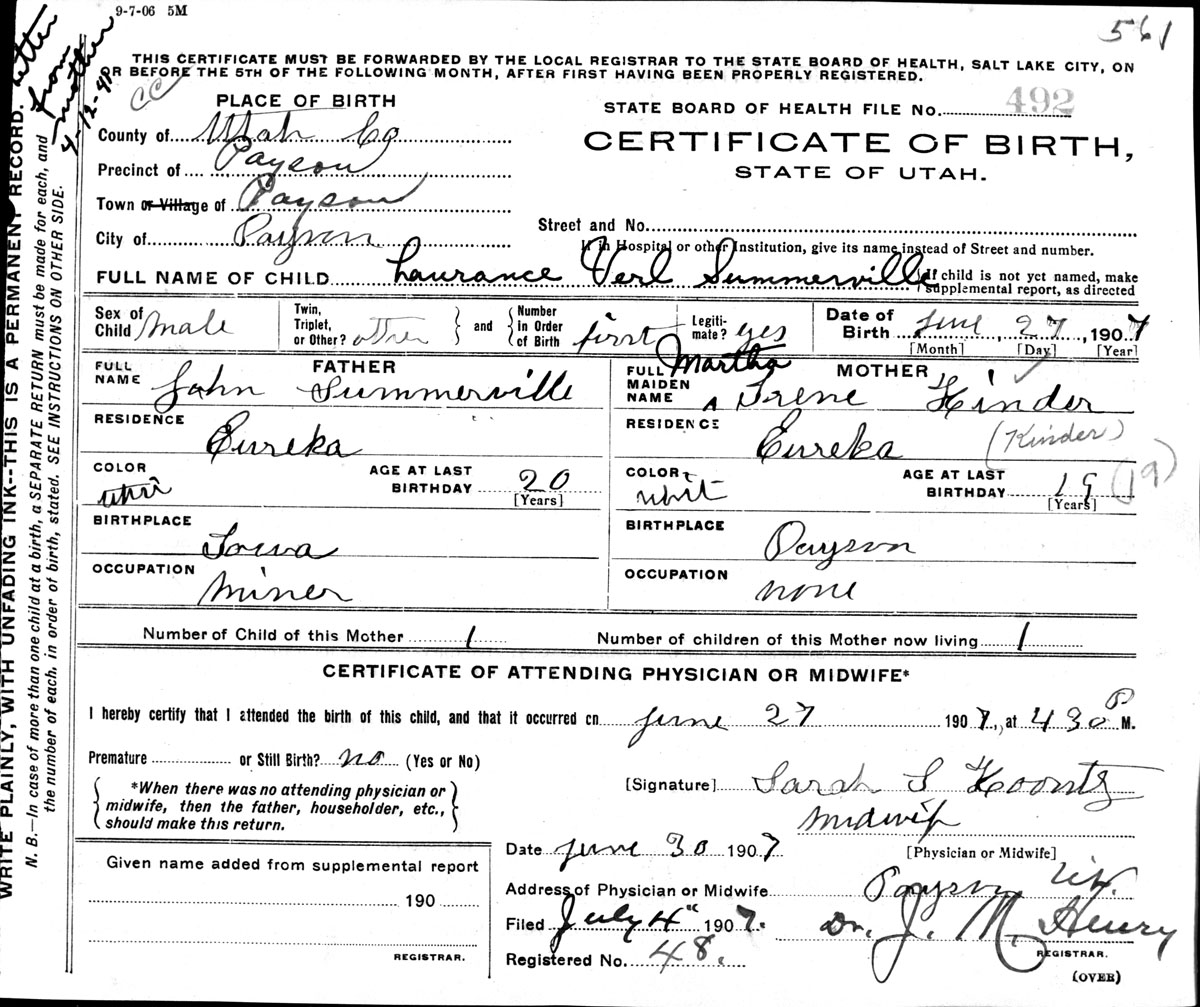 9-7-06 5M
561
THIS CERTIFICATE MUST BE FORWARDED BY THE LOCAL REGISTRAR TO THE STATE BOARD OF HEALTH, SALT LAKE CITY, ON
OR BEFORE THE 5TH OF THE FOLLOWING MONTH, AFTER FIRST HAVING BEEN PROPERLY REGISTERED.
CC
PLACE OF BIRTH
STATE BOARD OF HEALTH FILE No. 492
County of Utah Co
CERTIFICATE OF BIRTH,
Precinct of Payson
STATE OF UTAH.
Town or Village of Payson
City of Payson
Street and No.
If in Hospital or other Institution, give its name instead of Street and number.
FULL NAME OF CHILD Laurance Verl Summerville
If child is not yet named, make
supplemental report, as directed
Sex of Child Male
Twin, Triplet, or Other? other
and Number in Order of Birth first
Legitimate? yes
Date of Birth June, 27, 1907
[Month] [Day] [Year]
FATHER
FULL NAME John Summerville
MOTHER
FULL MAIDEN NAME Martha Irene Kinder
RESIDENCE Eureka
RESIDENCE Eureka (Kinder)
COLOR whit
AGE AT LAST BIRTHDAY 20
[Years]
COLOR whit
AGE AT LAST BIRTHDAY 19 (19)
[Years]
BIRTHPLACE Iowa
BIRTHPLACE Payson
OCCUPATION miner
OCCUPATION none
Number of Child of this Mother 1
Number of children of this Mother now living 1
CERTIFICATE OF ATTENDING PHYSICIAN OR MIDWIFE*
I hereby certify that I attended the birth of this child, and that it occurred on June 27 1907, at 430 P M.
Premature or Still Birth? no (Yes or No)
*When there was no attending physician or
midwife, then the father, householder, etc.,
should make this return.
[Signature] Sarah S Koontz
Midwife
[Physician or Midwife]
Date June 30 1907
Given name added from supplemental report
190
REGISTRAR.
Address of Physician or Midwife Payson Ut.
Filed July 4" 1907. Dr. J. M. Henry
REGISTRAR.
Registered No. 48.
(OVER)
WRITE PLAINLY, WITH UNFADING INK--THIS IS A PERMANENT RECORD.
N. B.—In case of more than one child at a birth, a SEPARATE RETURN must be made for each, and
the number of each, in order of birth, stated. SEE INSTRUCTIONS ON OTHER SIDE.
letter
from
mother